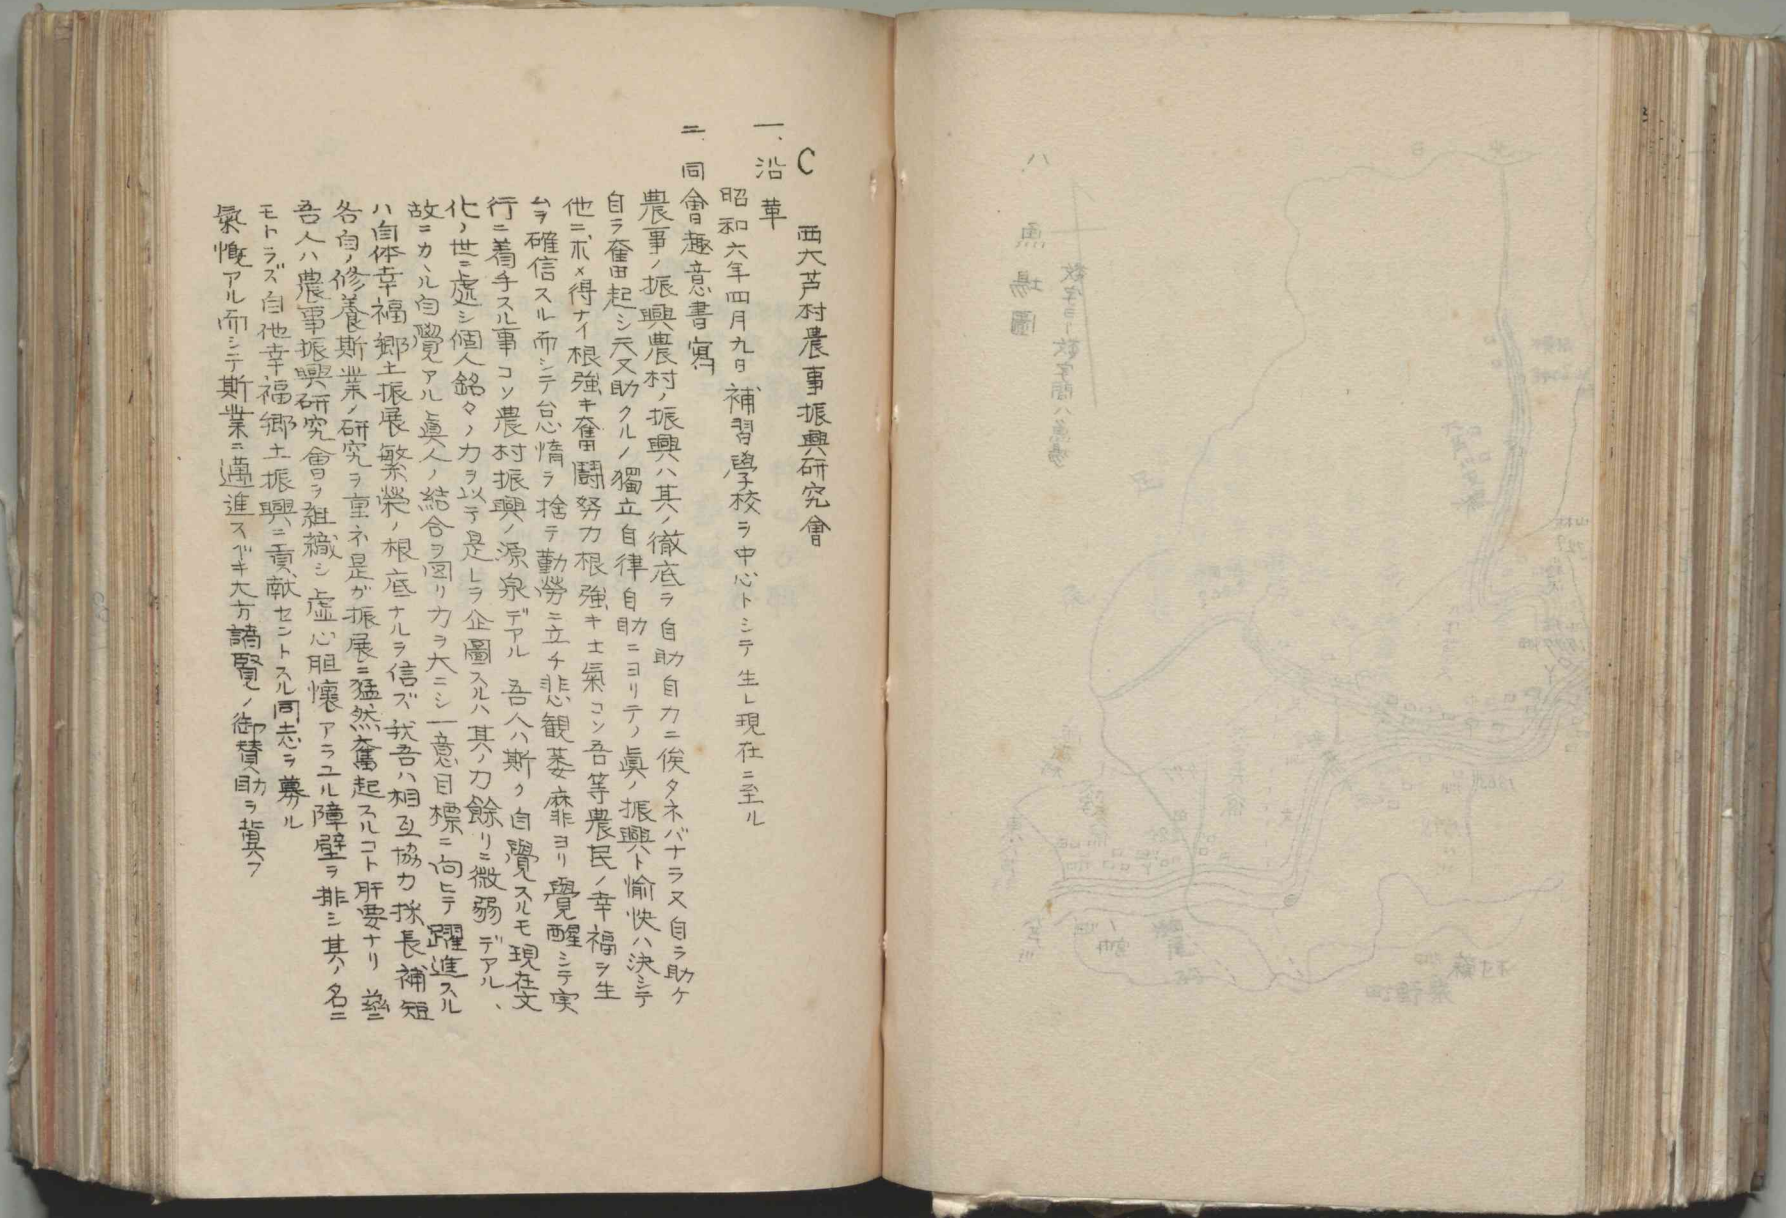 C 西大芦村農事振興研究會
一、沿革
昭和六年四月九日補習學校ヲ中心トシテ生レ現在ニ至ル
二、同會趣意書寫
農事ノ振興農村ノ振興ハ其ノ徹底ヲ自助自力ニ俟タネバナラヌ自ラ助ケ
自ラ奮起シ天又助クルノ獨立自律自助ニヨリテノ眞ノ振興ト愉快ハ決シテ
他ニ求メ得ナイ根強キ奮鬪努力根強キ士氣コソ吾等農民ノ幸福ヲ生
ムヲ確信スル而シテ怠惰ヲ捨テ勤勞ニ立チ悲観萎麻非ヨリ覺醒シテ実
行ニ着手スル事コソ農村振興ノ源泉デアル 吾人ハ斯ク自覺スルモ現在文
化ノ世ニ處シ個人銘々ノ力ヲ以テ是レヲ企圖スルハ其ノ力餘リニ微弱デアル、
故ニカヽル自覺アル眞人ノ結合ヲ圖リ力ヲ大ニシ一意目標ニ向ヒテ躍進スル
ハ自体幸福郷土振展繁榮ノ根底ナルヲ信ズ我吾ハ相互協力採長補短
各自ノ修養斯業ノ研究ヲ重ネ是が振展ニ猛然奮起スルコト肝要ナリ 茲ニ
吾人ハ農事振興研究會ヲ組織シ虚心胆懷アラユル障壁ヲ排シ其ノ名ニ
モトラズ自他幸福郷土振興ニ貢献セントスル同志ヲ募ル
氣慨アル而シテ斯業ニ邁進スベキ大方諸賢ノ御賛助ヲ冀フ